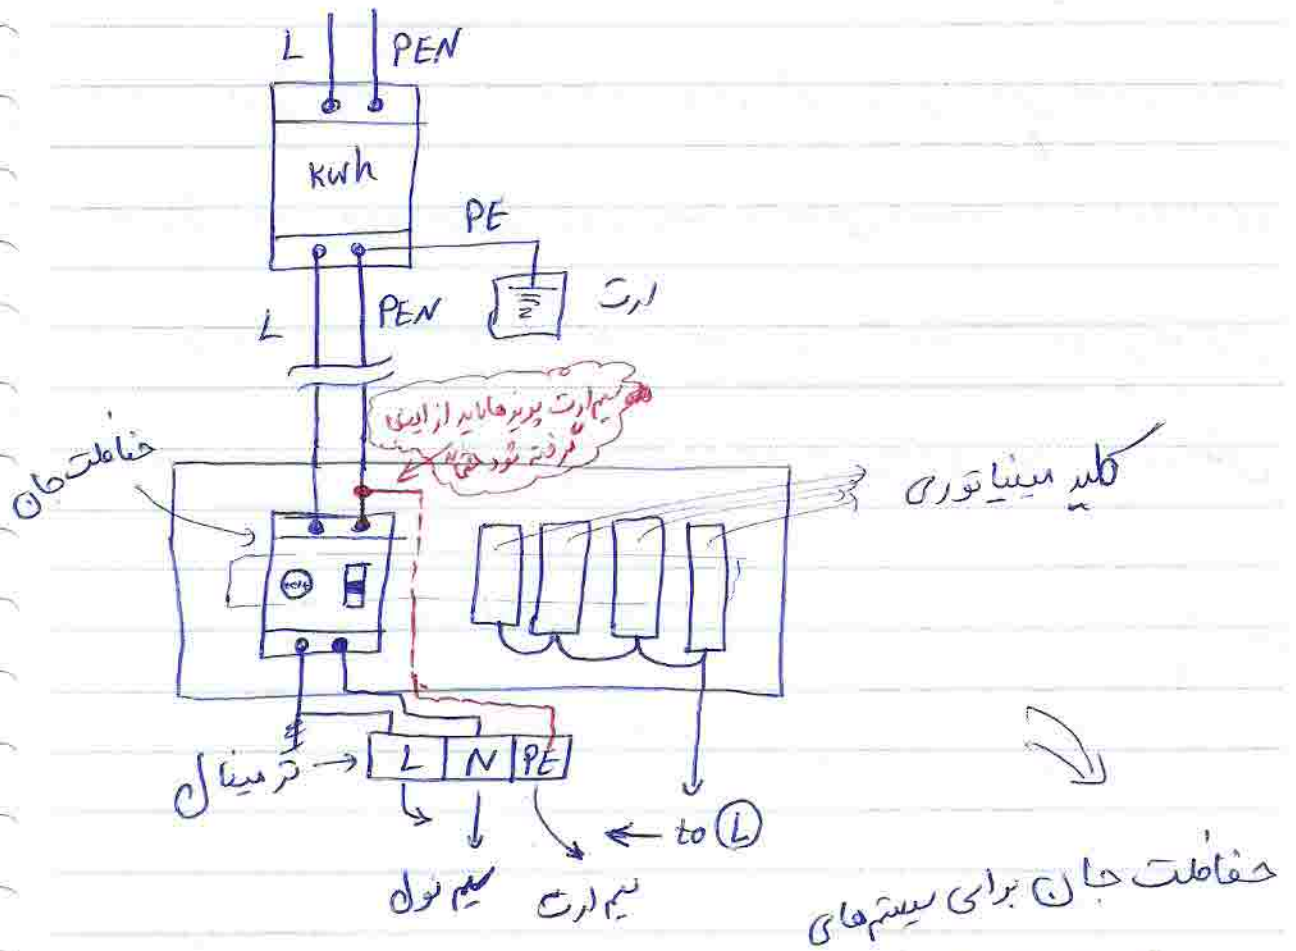 L PEN
kwh
PE
ارت
L PEN
سیم ارت پریزها باید از اینجا
گرفته شود حتماً
حفاظت جان
کلید مینیاتوری
test
ترمینال → L N PE
← to L
سیم نول
سیم ارت
حفاظت جان برای سیستم‌های